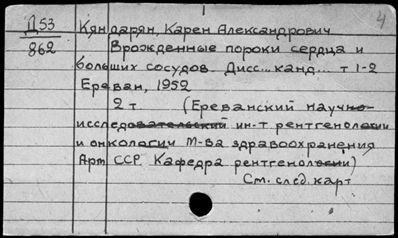 4
Д53
862
Кяндарян, Карен Александрович
Врожденные пороки сердца и
больших сосудов. Дисс... канд... т 1-2
Ереван, 1952
2 т. (Ереванский научно-
исследовательский ин-т рентгенологии
и онкологии М-ва здравоохранения
Арм ССР. Кафедра рентгенологии)
См. след. карт